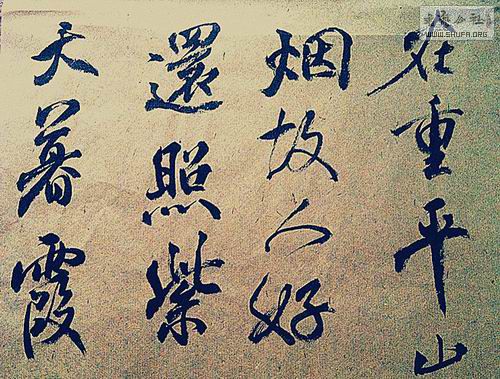 在重平山
烟故人好
還照紫
天暮霞
WWW.SHUFA.ORG